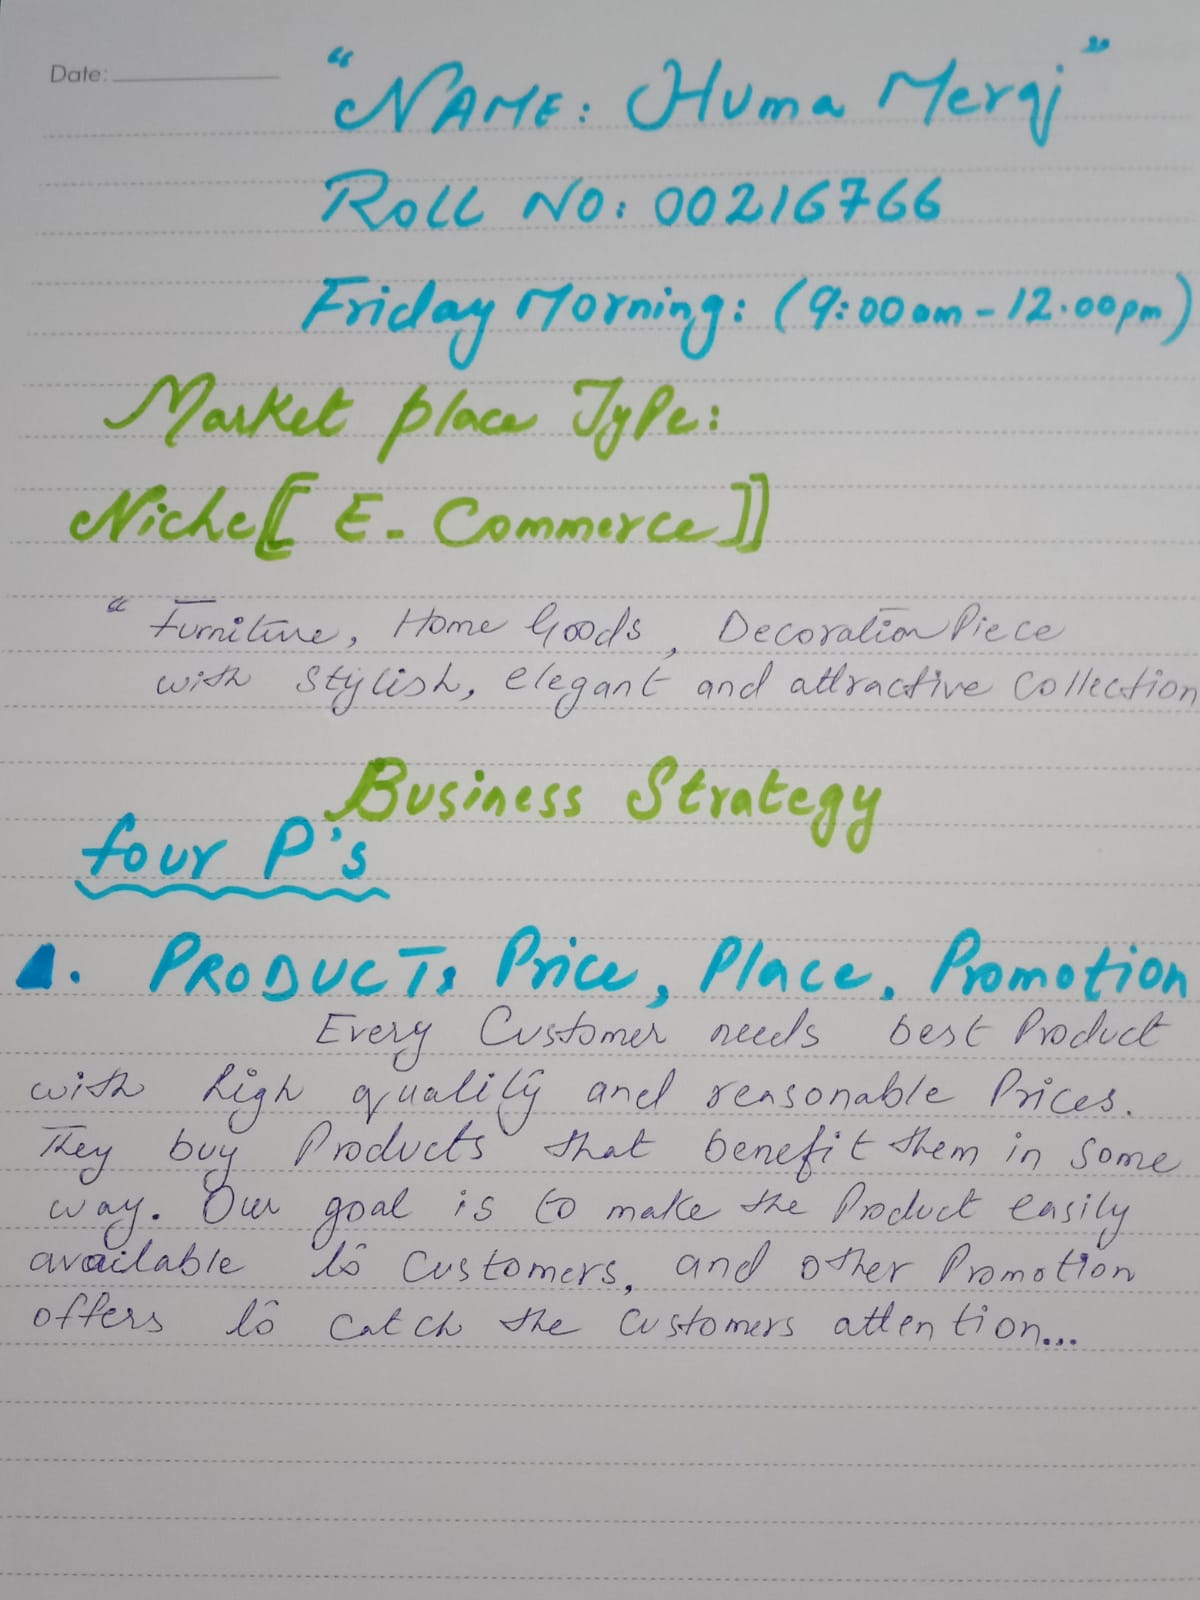 Date:
"NAME: Huma Meraj"
Roll NO: 00216766
Friday Morning: (9:00am - 12.00pm)
Market place Type:
Niche [[ E-Commerce ]]
" Furniture, Home Goods, Decoration Piece
with stylish, elegant and attractive Collection
Business Strategy
four P's
1. PRODUCT, Price, Place, Promotion
Every Customer needs best Product
with high quality and reasonable Prices.
They buy Products that benefit them in some
way. Our goal is to make the Product easily
available to Customers, and other Promotion
offers to catch the customers attention...